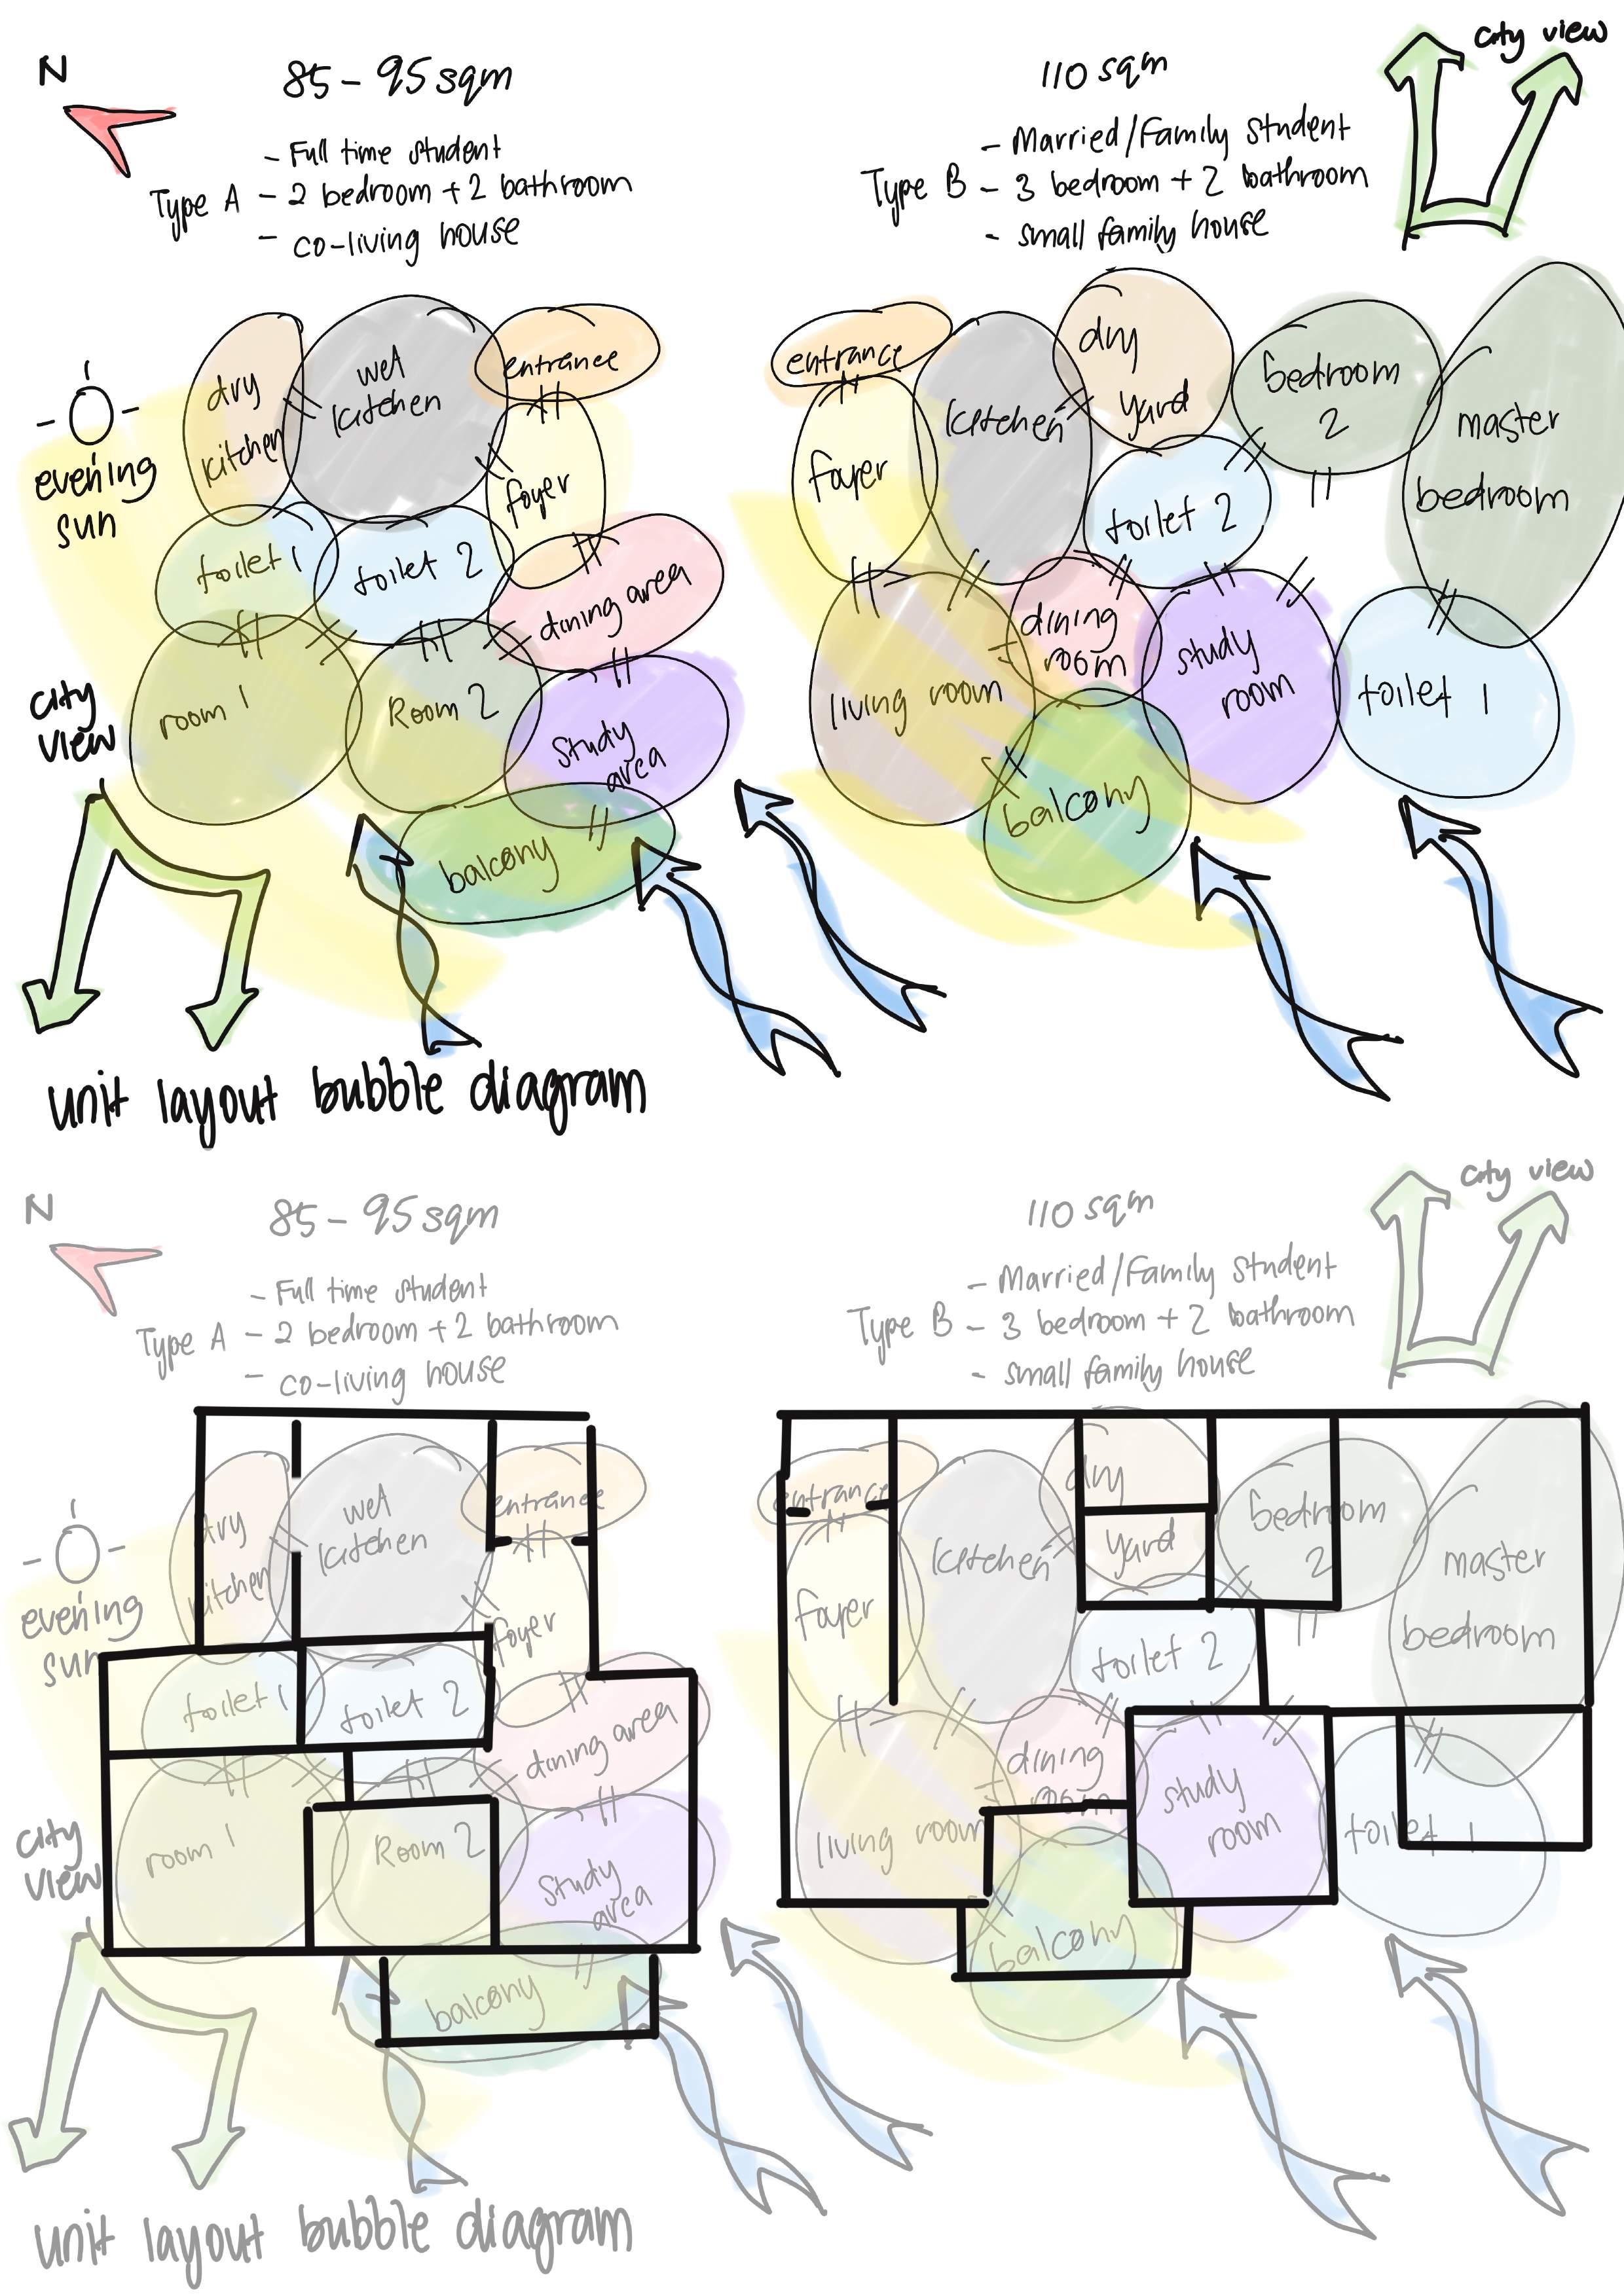 N
85 - 95 sqm
- Full time student
Type A - 2 bedroom + 2 bathroom
- co-living house
110 sqm
- Married/Family student
Type B - 3 bedroom + 2 bathroom
- small family house
city view
evening
sun
city
view
dry
kitchen
wet
kitchen
entrance
foyer
toilet 1
toilet 2
dining area
room 1
Room 2
study
area
balcony
entrance
foyer
kitchen
dry
yard
bedroom
2
master
bedroom
toilet 2
living room
dining
room
study
room
toilet 1
balcony
unit layout bubble diagram
N
85 - 95 sqm
- Full time student
Type A - 2 bedroom + 2 bathroom
- co-living house
110 sqm
- Married/Family student
Type B - 3 bedroom + 2 bathroom
- small family house
city view
evening
sun
city
view
dry
kitchen
wet
kitchen
entrance
foyer
toilet 1
toilet 2
dining area
room 1
Room 2
study
area
balcony
entrance
foyer
kitchen
dry
yard
bedroom
2
master
bedroom
toilet 2
living room
dining
room
study
room
toilet 1
balcony
unit layout bubble diagram